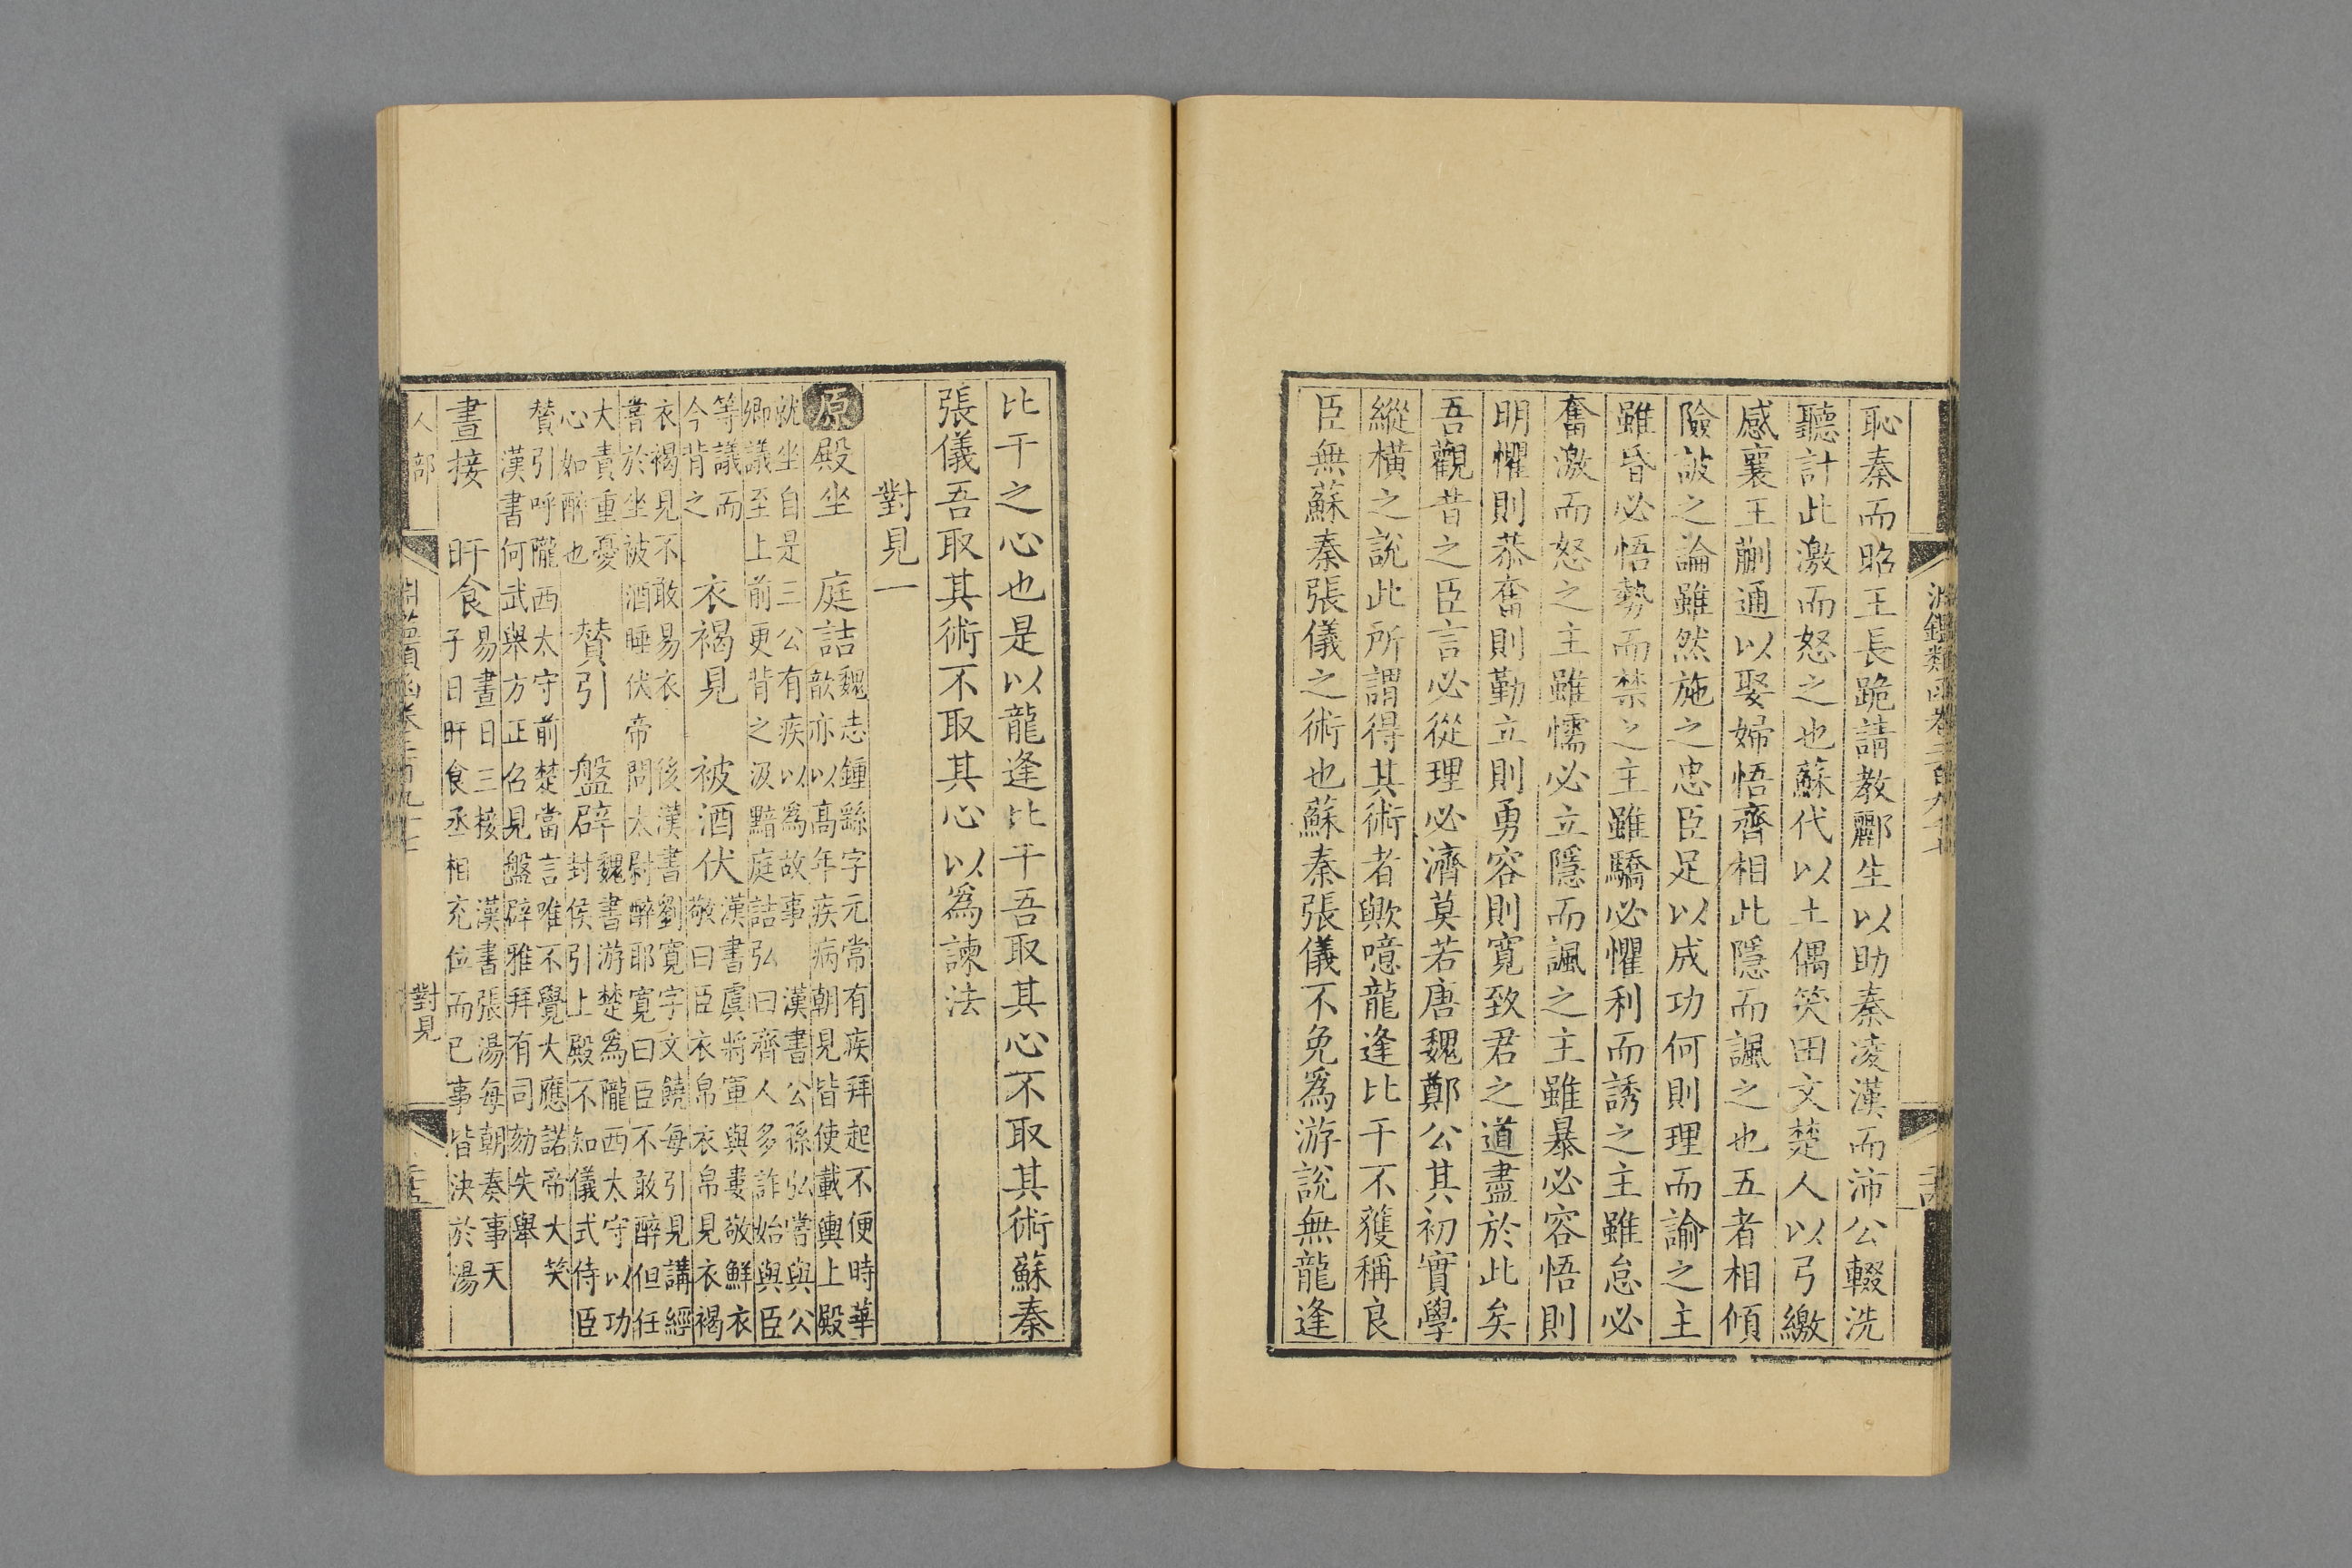 淵鑑類函卷二百九十七
恥秦而昭王長跪請教酈生以助秦凌漢而沛公輟洗
聽計此激而怒之也蘇代以土偶笑田文楚人以弓繳
感襄王蒯通以娶婦悟齊相此隱而諷之也五者相傾
險詖之論雖然施之忠臣足以成功何則理而諭之主
雖昏必悟勢而禁之主雖驕必懼利而誘之主雖怠必
奮激而怒之主雖懦必立隱而諷之主雖暴必容悟則
明懼則恭奮則勤立則勇容則寬致君之道盡於此矣
吾觀昔之臣言必從理必濟莫若唐魏鄭公其初實學
縱橫之說此所謂得其術者歟噫龍逢比干不獲稱良
臣無蘇秦張儀之術也蘇秦張儀不免爲游說無龍逢
比干之心也是以龍逢比干吾取其心不取其術蘇秦
張儀吾取其術不取其心以爲諫法
對見一
原殿坐 庭詰
魏志鍾繇字元常有疾拜起不便時華
歆亦以高年疾病朝見皆使載輿上殿
就坐自是三公有疾以爲故事 漢書公孫弘嘗與公
卿議至上前更背之汲黯庭詰弘曰齊人多詐始與臣
等議而
今背之
衣褐見 被酒伏
漢書虞將軍與婁敬鮮衣
敬曰臣衣帛衣帛見衣褐
衣褐見不敢易衣 後漢書劉寬字文饒每引見講經
嘗於坐被酒睡伏帝問太尉醉耶寬曰臣不敢醉但任
大責重憂
心如醉也
贊引 盤辟
魏書游楚爲隴西太守以功
封侯引上殿不知儀式侍臣
贊引呼隴西太守前楚當言唯不覺大應諾帝大笑
漢書何武舉方正召見盤辟雅拜有司劾失舉
晝接 旰食
易晝日三接 漢書張湯每朝奏事天
子日旰食丞相充位而已事皆決於湯
人部
對見